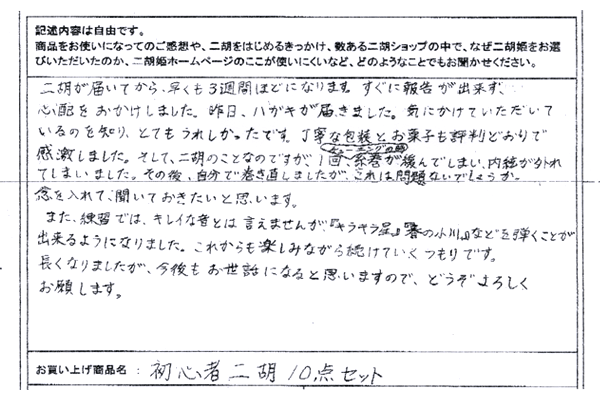 記述内容は自由です。
商品をお使いになってのご感想や、二胡をはじめるきっかけ、数ある二胡ショップの中で、なぜ二胡姫をお選
びいただいたのか、二胡姫ホームページのここが使いにくいなど、どのようなことでもお聞かせください。
二胡が届いてから、早くも3週間ほどになります。すぐに報告が出来ず、
心配をおかけしました。昨日、ハガキが届きました。気にかけていただいて
いるのを知り、とてもうれしかったです。丁寧な包装とお菓子も評判どおりで
感激しました。そして、二胡のことなのですが、1回、糸巻が緩んでしまい、内絃が外れ
チューニングの時
てしまいました。その後、自分で巻き直しましたが、これは問題ないでしょうか。
念を入れて、聞いておきたいと思います。
また、練習では、キレイな音とは言えませんが、『キラキラ星』『春の小川』などを弾くことが
出来るようになりました。これからも楽しみながら続けていくつもりです。
長くなりましたが、今後もお世話になると思いますので、どうぞよろしく
お願します。
お買い上げ商品名：初心者二胡10点セット